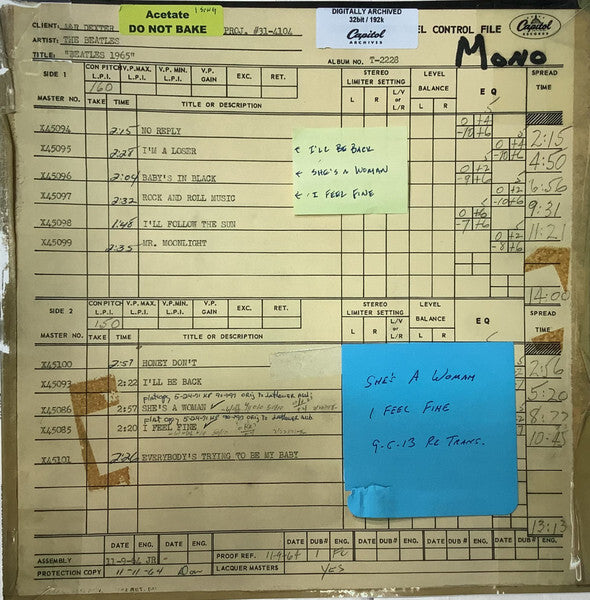 Acetate
DO NOT BAKE
DIGITALLY ARCHIVED
32bit / 192k
Capitol
ARCHIVES
Capitol
RECORDS
CLIENT: DEXTER PROJ. #31-4104 EL CONTROL FILE
ARTIST: THE BEATLES
MONO
TITLE: "BEATLES 1965" ALBUM NO. T-2228
SIDE 1 CON PITCH L.P.I. V.P.MAX. L.P.I. V.P. MIN. L.P.I. V.P. GAIN EXC. RET. STEREO LIMITER SETTING LEVEL BALANCE EQ SPREAD TIME
160
MASTER NO. TAKE TIME TITLE OR DESCRIPTION L R L/V or L/R L R
X45094 2:15 NO REPLY 0 +4 -10 +6 2:15
X45095 2:28 I'M A LOSER 0 +4 -10 +6 4:50
X45096 2:04 BABY'S IN BLACK 0 +2 -9 +6 6:56
X45097 2:32 ROCK AND ROLL MUSIC -10 +6 9:31
X45098 1:48 I'LL FOLLOW THE SUN 0 +6 -7 +6 11:21
X45099 2:35 MR. MOONLIGHT 0 +2 -8 +6
14:00
← I'LL BE BACK
← SHE'S A WOMAN
← I FEEL FINE
SIDE 2 CON PITCH L.P.I. V.P.MAX. L.P.I. V.P.MIN. L.P.I. V.P. GAIN EXC. RET. STEREO LIMITER SETTING LEVEL BALANCE EQ SPREAD TIME
150
MASTER NO. TAKE TIME TITLE OR DESCRIPTION L R L/V or L/R L R
X45100 2:57 HONEY DON'T 2:56
X45093 2:22 I'LL BE BACK 5:20
X45086 2:57 SHE'S A WOMAN ✓
X45085 2:20 I FEEL FINE ✓ 10:45
X45101 2:26 EVERYBODY'S TRYING TO BE MY BABY
13:13
SHE'S A WOMAN
I FEEL FINE
9-6-13 RE TRANS.
DATE ENG. DATE ENG. DATE DUB# ENG. DATE DUB# ENG. DATE DUB# ENG.
ASSEMBLY 11-9-64 JR PROOF REF. 11-9-64 1
PROTECTION COPY 11-11-64 LACQUER MASTERS YES